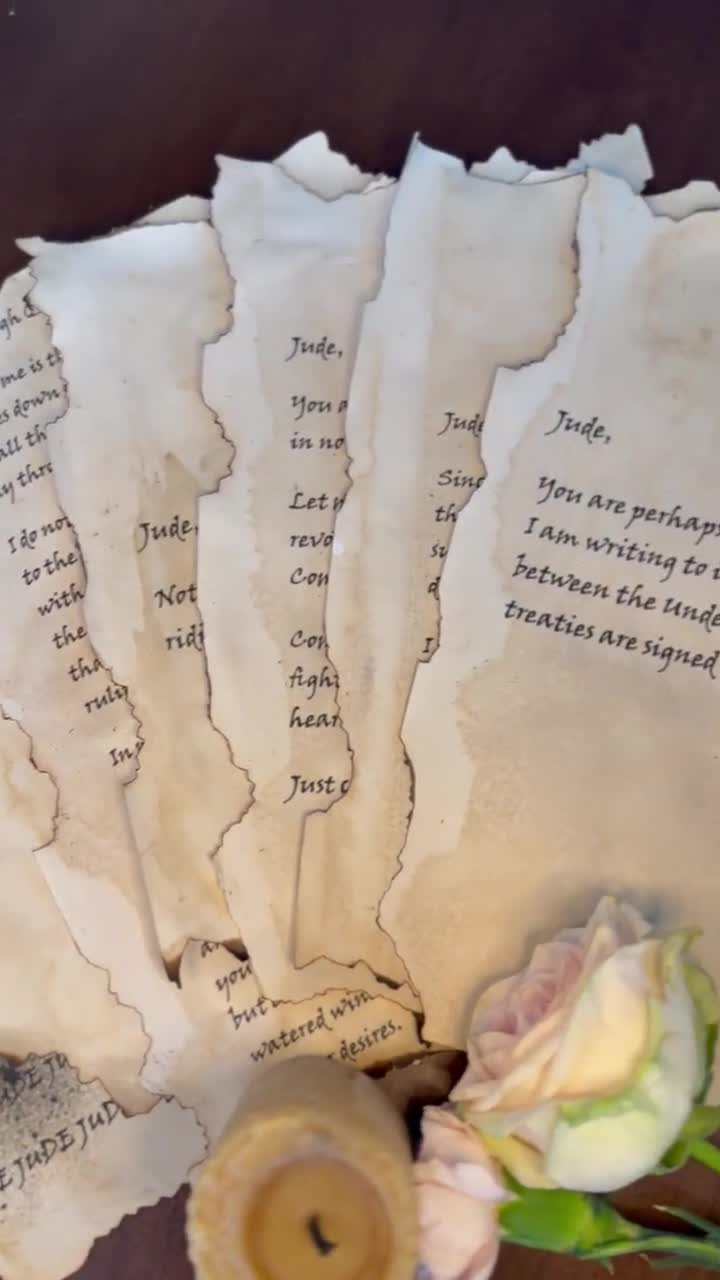 me is th
es down
all th
y thro
I do not
to the
with
the
tha
rulin
In
Jude,
Not
ridi
Jude,
You a
in no
Let m
revo
Con
Con
figh
hear
Just
Jude
Sinc
th
su
d
I
Jude,
You are perhaps
I am writing to
between the Unde
treaties are signed
an
you
but
watered win
desires.
UDE JU
E JUDE JUD